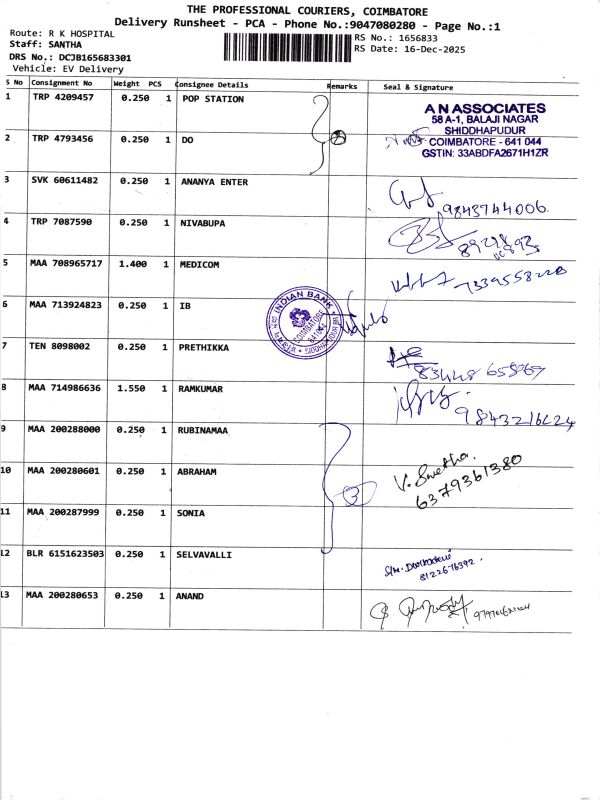 THE PROFESSIONAL COURIERS, COIMBATORE
Delivery Runsheet - PCA - Phone No.:9047080280 - Page No.:1
Route: R K HOSPITAL
Staff: SANTHA
DRS No.: DCJB165683301
Vehicle: EV Delivery
RS No.: 1656833
RS Date: 16-Dec-2025
S No Consignment No Weight PCS Consignee Details Remarks Seal & Signature
1 TRP 4209457 0.250 1 POP STATION
A N ASSOCIATES
58 A-1, BALAJI NAGAR
SHIDDHAPUDUR
COIMBATORE - 641 044
GSTIN: 33ABDFA2671H1ZR
2 TRP 4793456 0.250 1 DO
3 SVK 60611482 0.250 1 ANANYA ENTER
9843744006
4 TRP 7087590 0.250 1 NIVABUPA
5 MAA 708965717 1.400 1 MEDICOM
6 MAA 713924823 0.250 1 IB
INDIAN BANK
COIMBATORE
7 TEN 8098002 0.250 1 PRETHIKKA
83448 65869
8 MAA 714986636 1.550 1 RAMKUMAR
9 MAA 200288000 0.250 1 RUBINAMAA
10 MAA 200280601 0.250 1 ABRAHAM
3
V. Swetha.
6379361380
11 MAA 200287999 0.250 1 SONIA
12 BLR 6151623503 0.250 1 SELVAVALLI
8122676392
13 MAA 200280653 0.250 1 ANAND